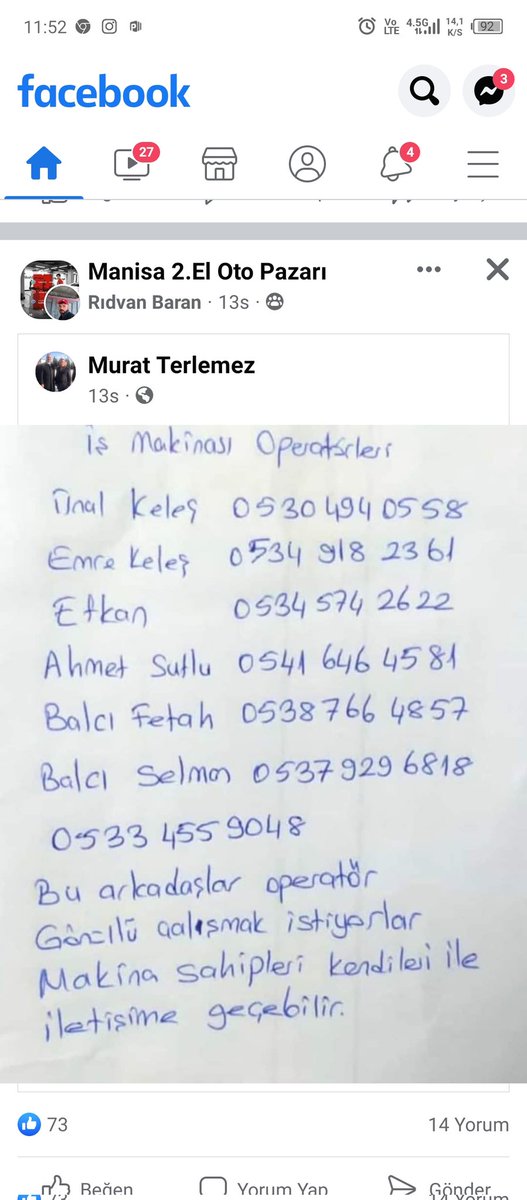 11:52
Vo LTE 4.5G 14,1 K/S 92
facebook
3
27
4
Manisa 2.El Oto Pazarı
Rıdvan Baran · 13s ·
Murat Terlemez
13s ·
İş Makinası Operatörleri
Ünal Keleş 0530 494 0558
Emre Keleş 0534 918 2361
Efkan 0534 574 2622
Ahmet Sutlu 0541 646 4581
Balcı Fetah 0538 766 4857
Balcı Selmon 0537 929 6818
0533 455 9048
Bu arkadaşlar operatör
Gönüllü çalışmak istiyorlar
Makina sahipleri kendileri ile
iletişime geçebilir.
73
14 Yorum
Beğen
Yorum Yap
Gönder
73
14 Yorum